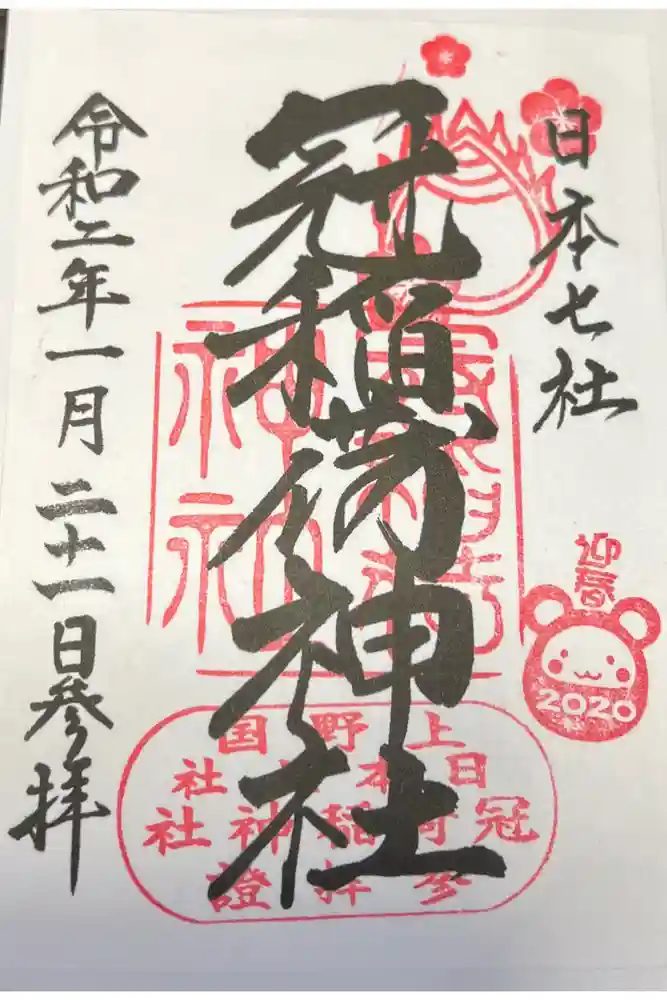 日本七社
冠稲荷神社
令和二年一月二十一日参拝
迎春
2020
上野国
日本七社
冠稲荷神社
参拝證